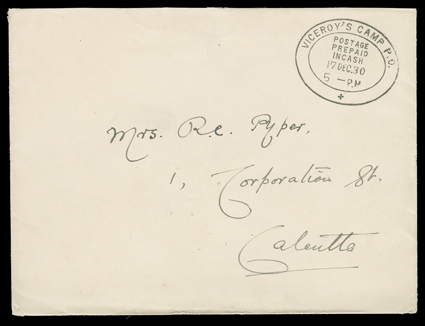 VICEROY'S CAMP P.O.
POSTAGE
PREPAID
INCASH
17 DEC.30
5 - P.M
Mrs. R.C. Pyper,
1, Corporation St.
Calcutta